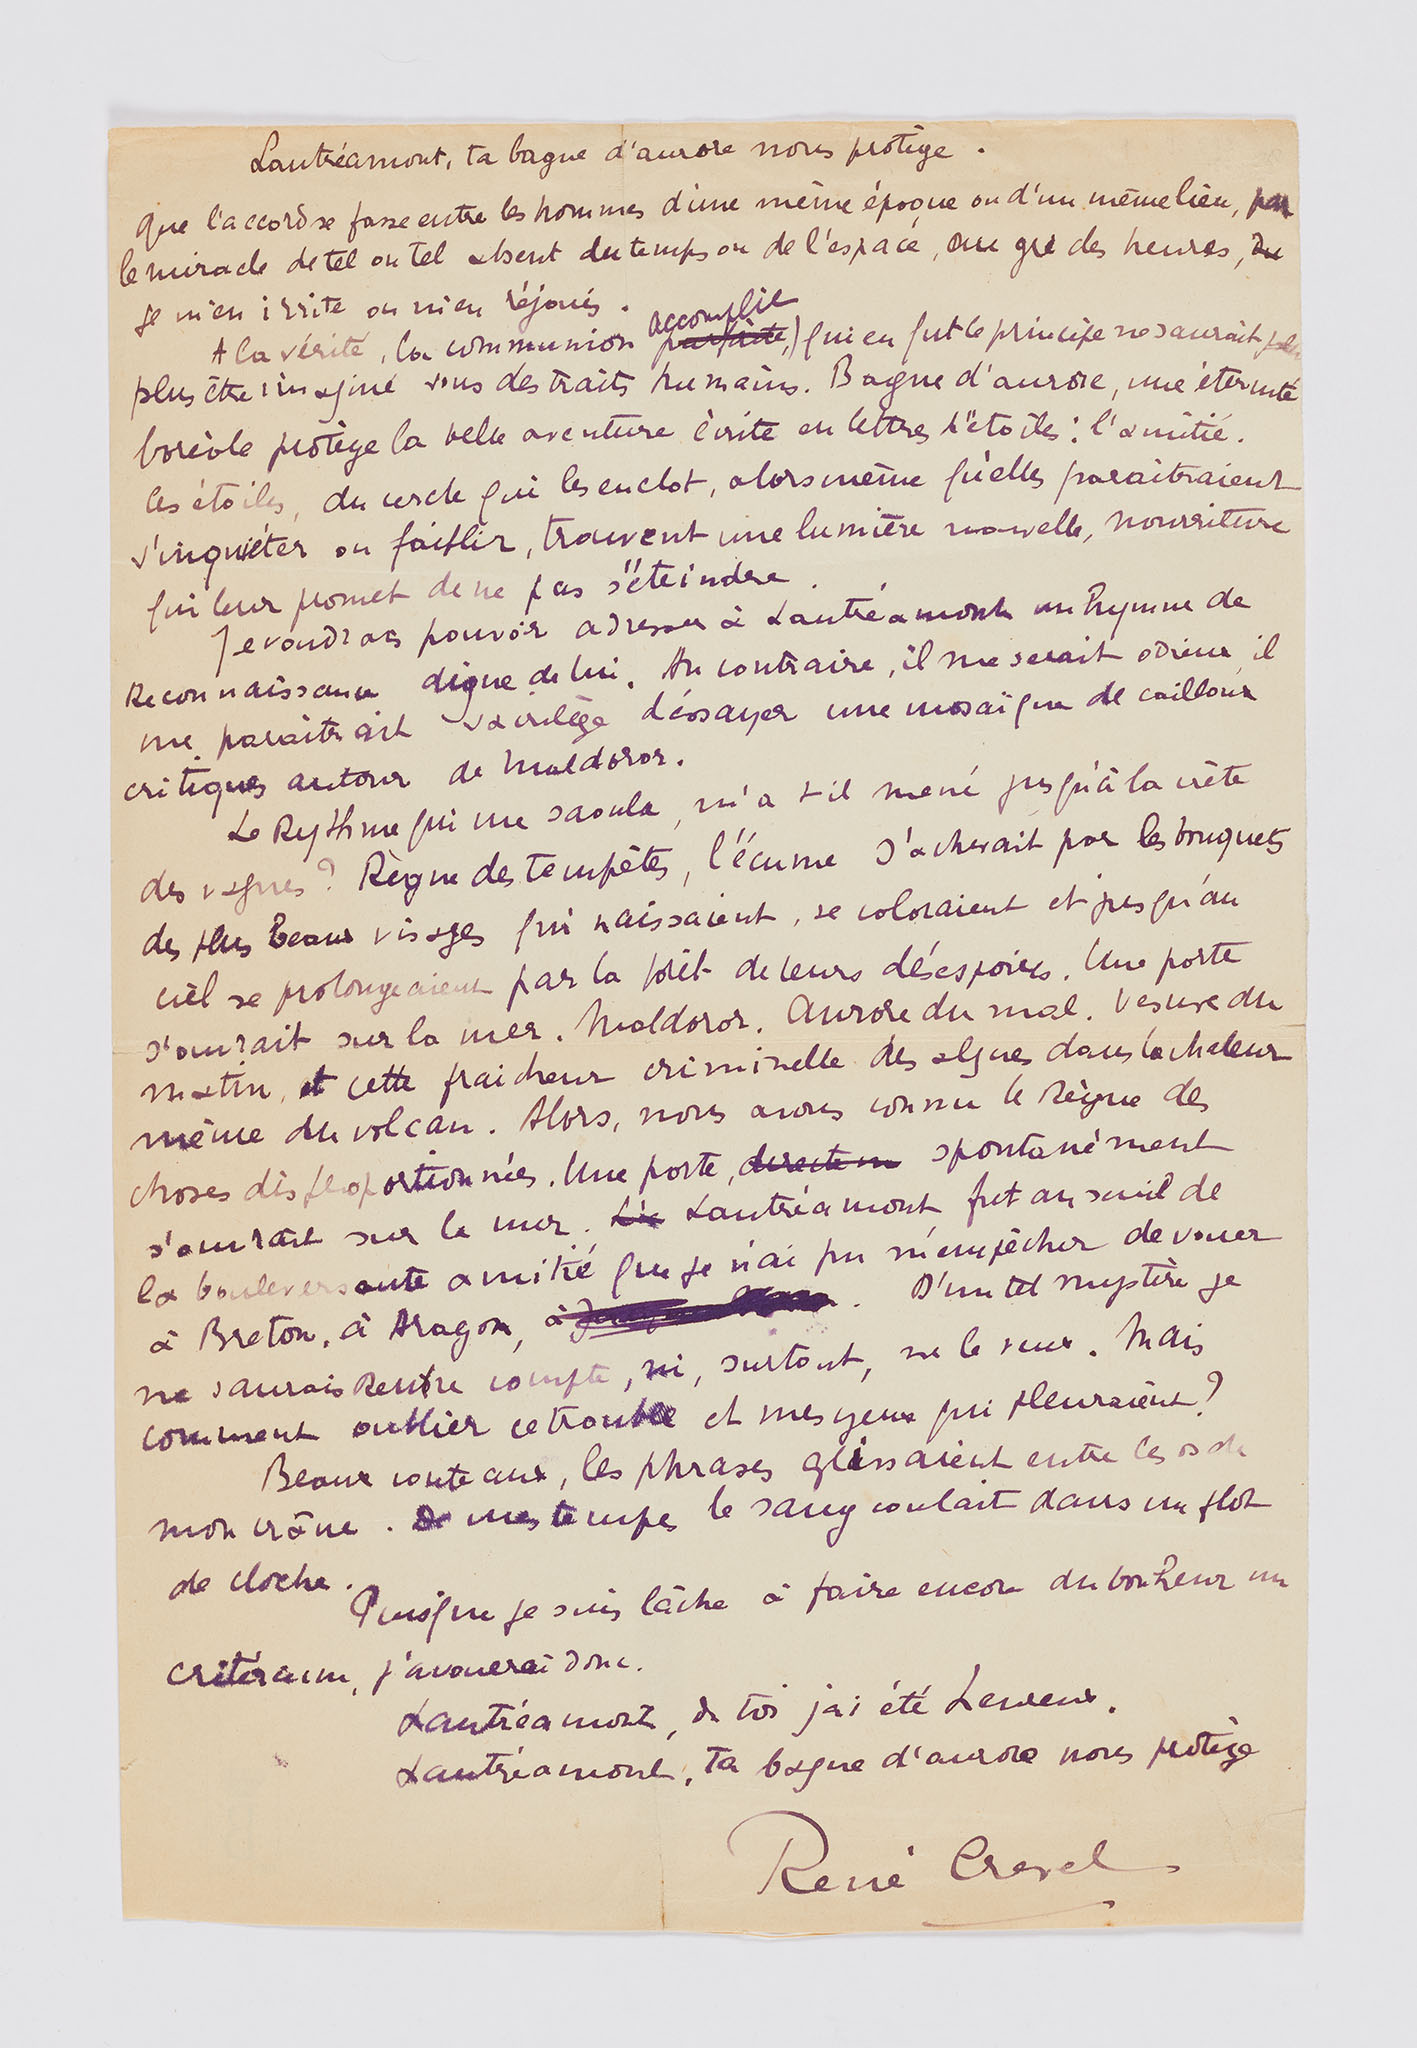 Lautréamont, ta bague d'aurore nous protège.
Que l'accord se fasse entre les hommes d'une même époque ou d'un même lieu, par
le miracle de tel ou tel absent du temps ou de l'espace, au gré des heures,
je m'en irrite ou m'en réjouis.
accomplie
A la vérité, la communion parfaite, qui en fut le principe ne saurait
plus être imaginé sous des traits humains. Bague d'aurore, une éternité
boréale protège la belle aventure écrite en lettres d'étoiles : l'amitié.
Les étoiles, du cercle qui les enclot, alors même qu'elles paraîtraient
s'inquiéter ou faiblir, trouvent une lumière nouvelle, nourriture
qui leur promet de ne pas s'éteindre.
Je voudrais pouvoir adresser à Lautréamont un hymne de
Reconnaissance digne de lui. Au contraire, il me serait odieux, il
me paraîtrait sacrilège d'essayer une mosaïque de cailloux
critiques autour de Maldoror.
Le Rythme qui me saoula, m'a t-il mené jusqu'à la crête
des vagues ? Règne des tempêtes, l'écume s'achevait par les bouquets
des plus beaux visages qui naissaient, se coloraient et jusqu'au
ciel se prolongeaient par la forêt de leurs désespoirs. Une porte
s'ouvrait sur la mer. Maldoror. Aurore du mal. Vesuve du
matin, et cette fraicheur criminelle des algues dans la chaleur
même du volcan. Alors, nous avons connu le Règne des
choses disproportionnées. Une porte, spontanément
s'ouvrait sur la mer. Lautréamont fut au seuil de
la bouleversante amitié que je n'ai pu m'empêcher de vouer
à Breton, à Aragon, à . D'un tel mystère je
ne saurais Rendre compte, ni, surtout, ne le veux. Mais
comment oublier ce trouble et mes yeux qui pleuraient ?
Beaux couteaux, les phrases glissaient entre les os de
mon crâne. De mes tempes le sang coulait dans un flot
de cloche.
Puisque je suis lâche à faire encore du bonheur un
critérium, j'avouerai donc.
Lautréamont, de toi j'ai été heureux.
Lautréamont, ta bague d'aurore nous protège
René Crevel